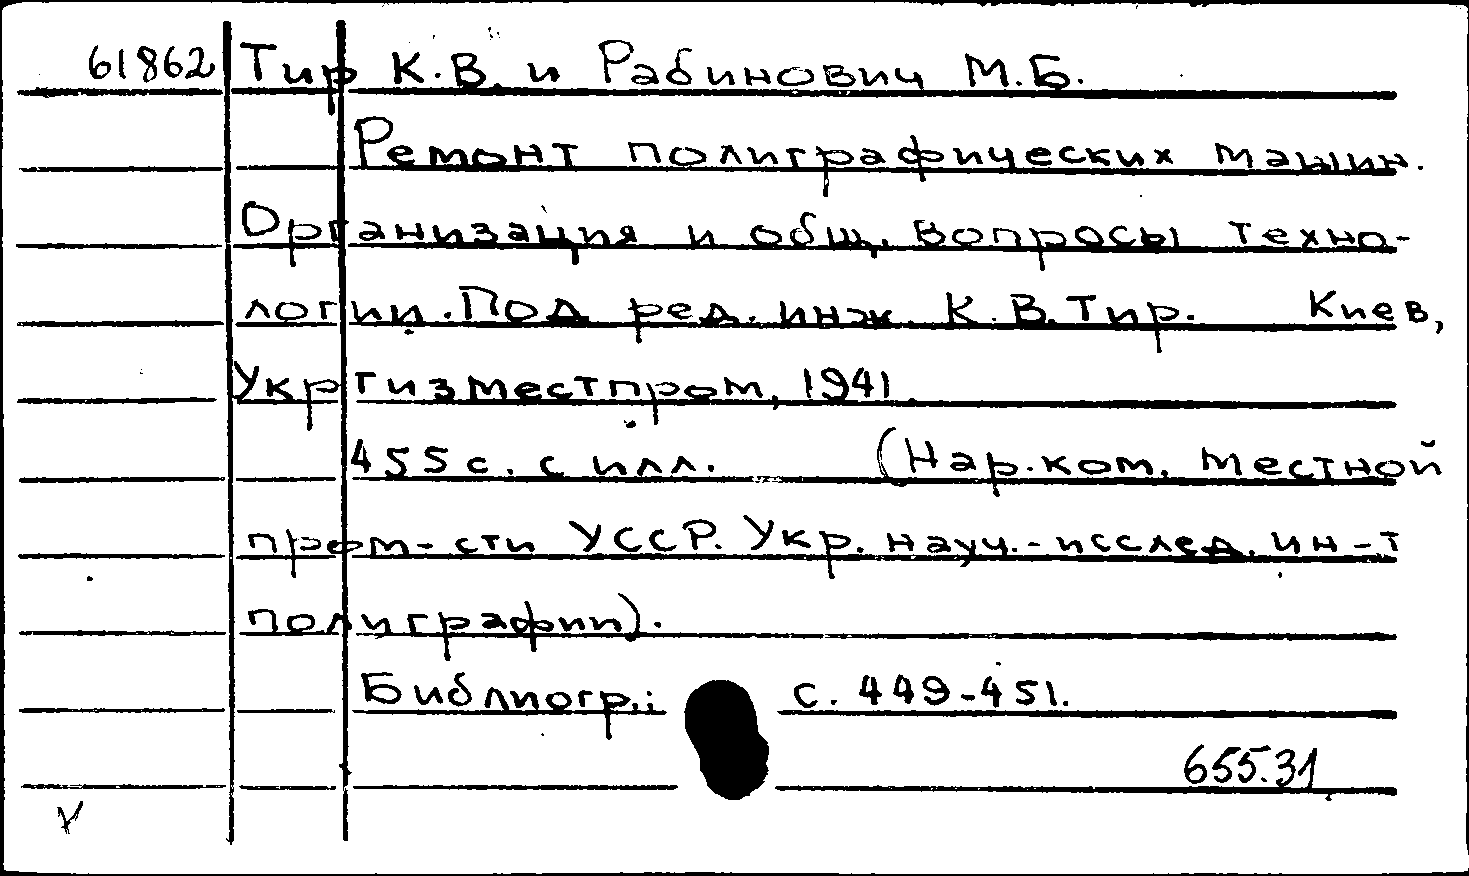 61862 Тир К.В. и Рабинович М.Б.
Ремонт полиграфических машин.
Организация и общ. вопросы техно-
логии. Под ред. инж. К.В. Тир. Киев,
Укргизместпром, 1941.
455 с. с илл. (Нар. ком. местной
пром-сти УССР. Укр. науч.-исслед. ин-т
полиграфии).
Библиогр.: с. 449-451.
655.31